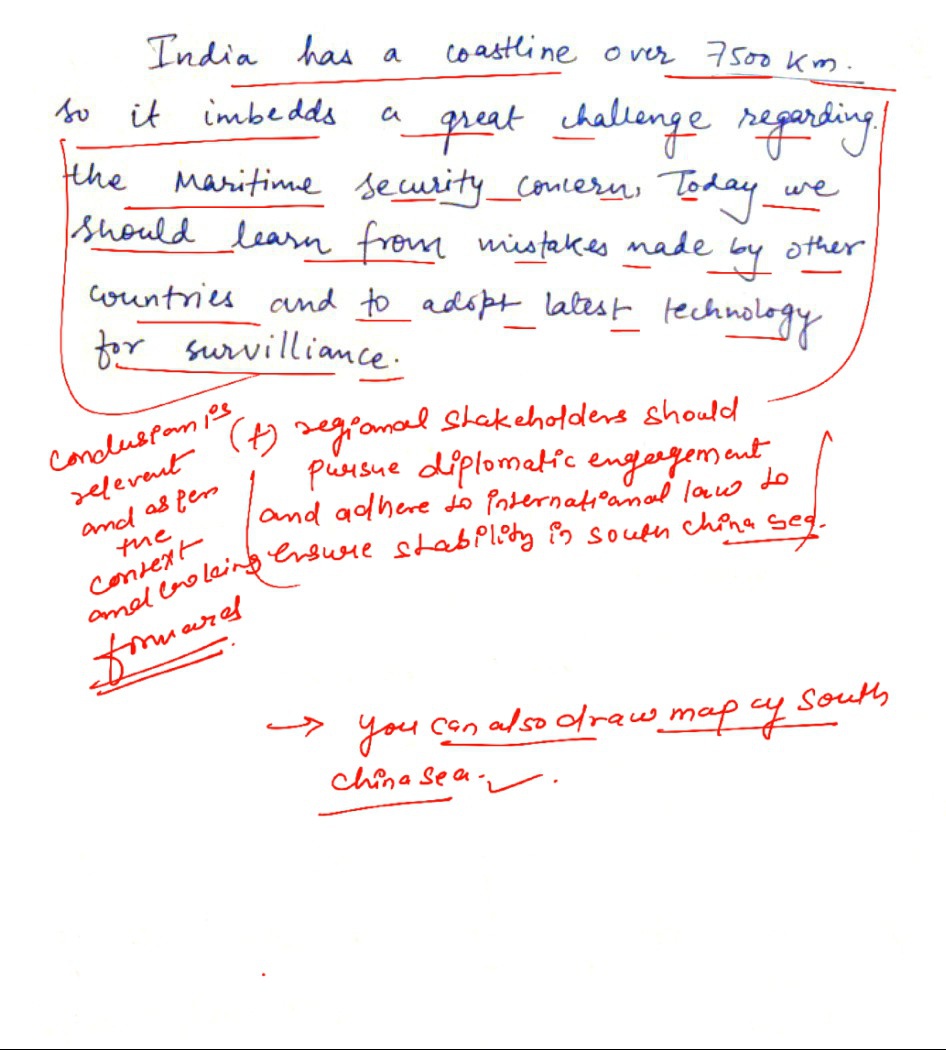 India has a coastline over 7500 Km.
so it imbedds a great challenge regarding
the Maritime security concern, Today we
should learn from mistakes made by other
countries and to adopt latest technology
for survilliance.
conclusion is
relevent
and as per
the
context
and looking
forward
(+) regional stakeholders should
pursue diplomatic engagement
and adhere to international law to
ensure stability in south china sea.
→ you can also draw map of South
china sea.